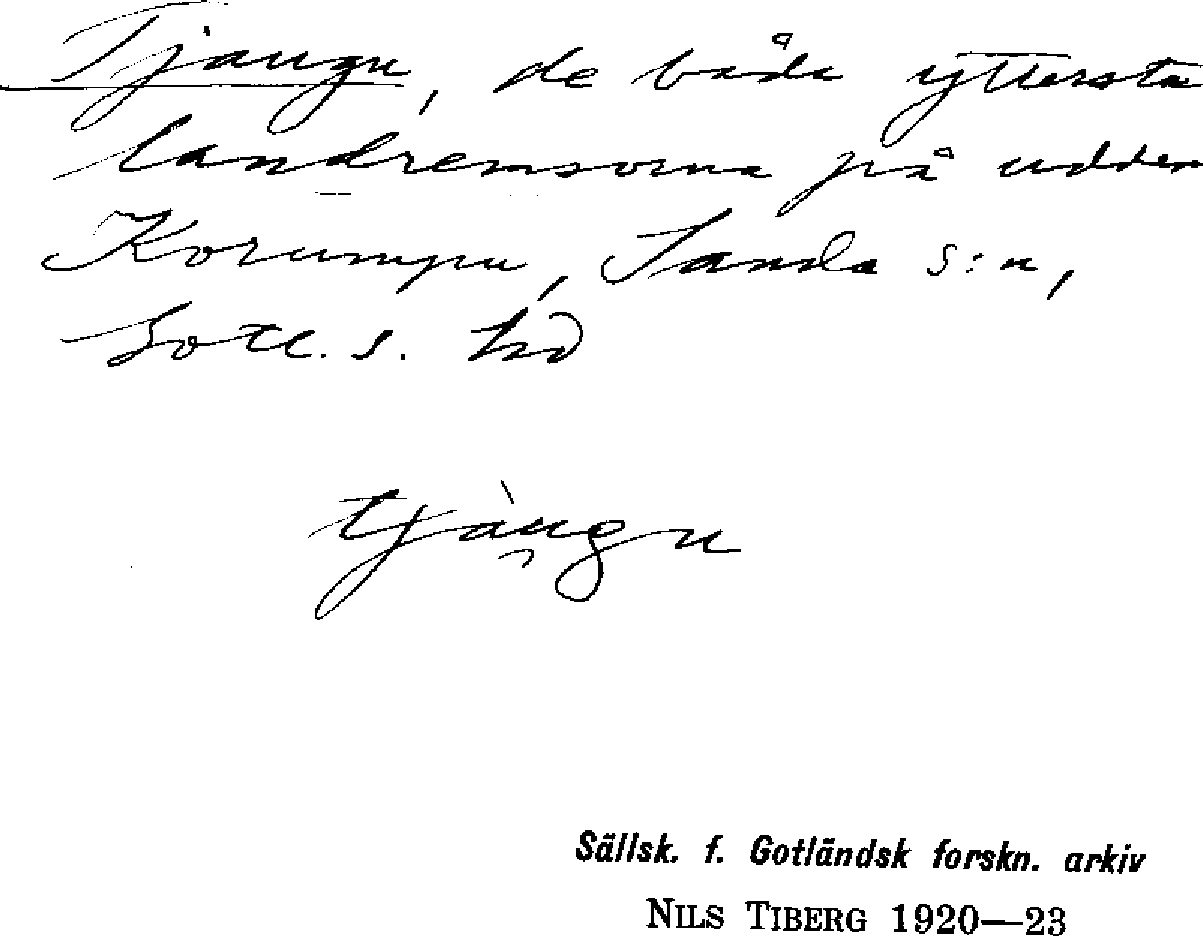 Tjaugu, de båda yttersta
landremsorna på udden
Korumpu, Sanda s:n,
Gotl. s. hd
tjàu̯gu
Sällsk. f. Gotländsk forskn. arkiv
NILS TIBERG 1920—23